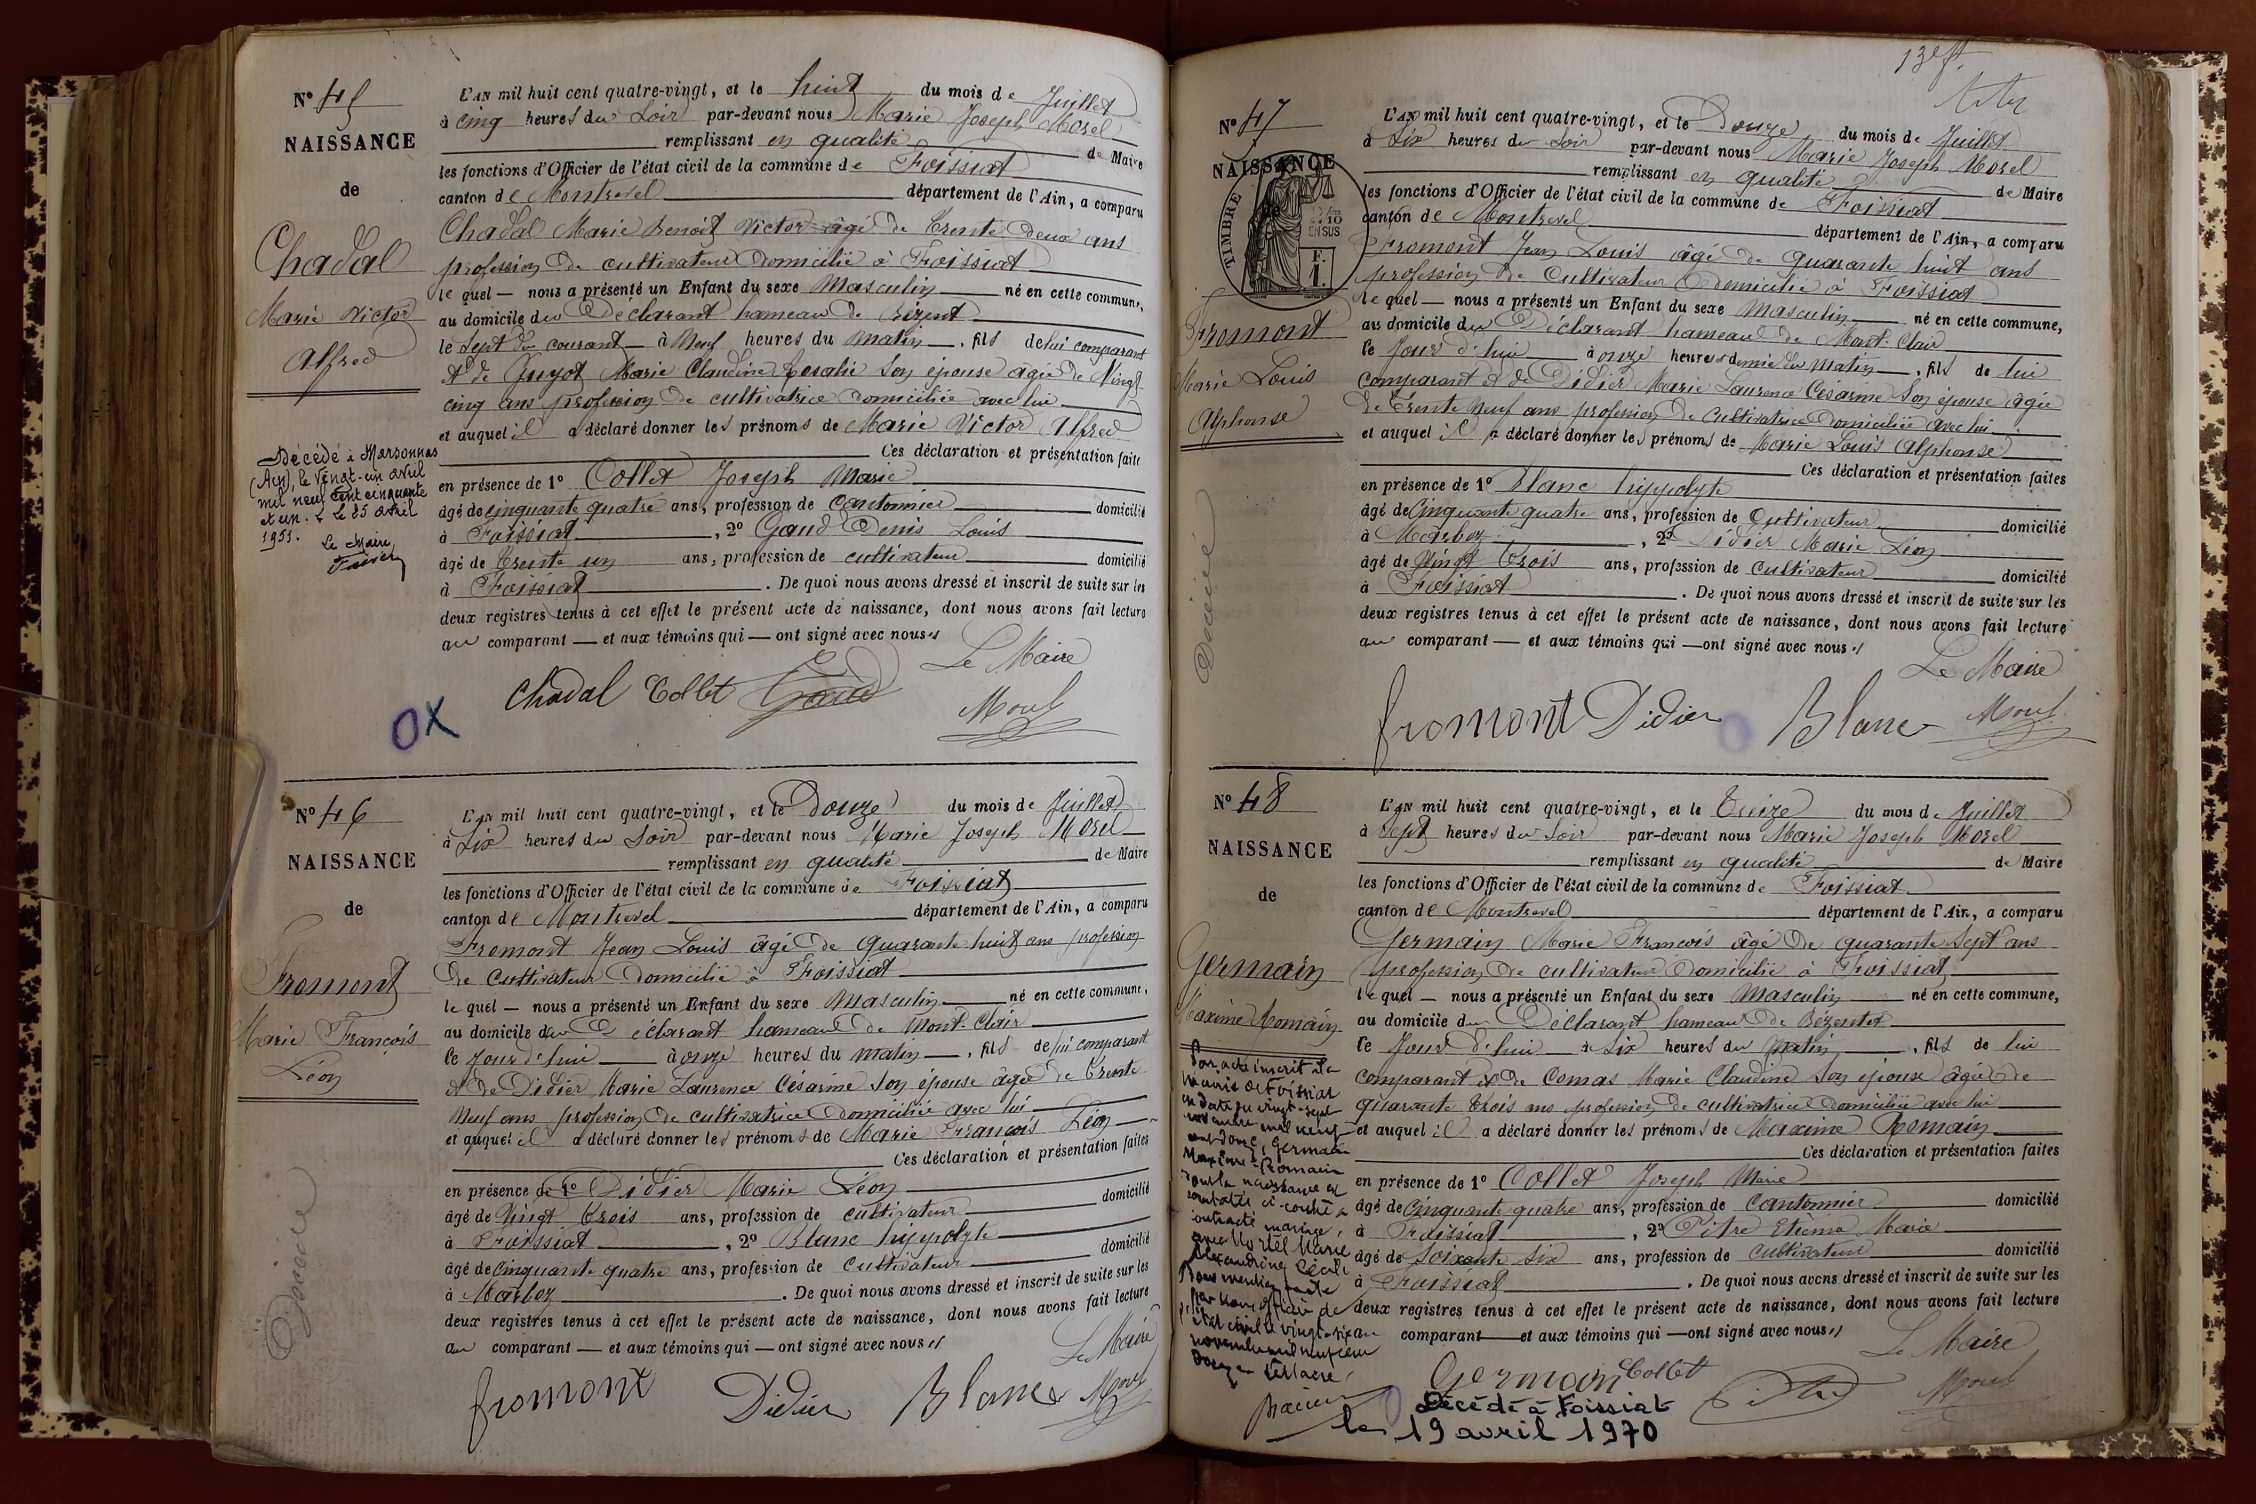 N° 45
NAISSANCE
de
Chadal
Marie Victor
Alfred
Décédé à Marsonnas
(Ain), le vingt-un avril
mil neuf cent cinquante
et un. Le 25 avril
1951. Le Maire
L'AN mil huit cent quatre-vingt, et le huit du mois de Juillet
à cinq heures du Soir par-devant nous Marie Joseph Morel
remplissant en qualité de Maire
les fonctions d'Officier de l'état civil de la commune de Foissiat
canton de Montrevel département de l'Ain, a comparu
Chadal Marie Benoit Victor âgé de trente deux ans
profession de cultivateur domicilié à Foissiat
le quel — nous a présenté un Enfant du sexe Masculin né en cette commune,
au domicile du Déclarant hameau de
le sept du courant à Neuf heures du matin, fils de lui comparant
et de Guyot Marie Claudine Rosalie son épouse âgée de Vingt-
cinq ans profession de cultivatrice domiciliée avec lui
et auquel il a déclaré donner les prénoms de Marie Victor Alfred
Ces déclaration et présentation faites
en présence de 1° Collet Joseph Marie
âgé de cinquante quatre ans, profession de cantonnier domicilié
à Foissiat, 2° Gaud Denis Louis
âgé de trente un ans, profession de cultivateur domicilié
à Foissiat. De quoi nous avons dressé et inscrit de suite sur les
deux registres tenus à cet effet le présent acte de naissance, dont nous avons fait lecture
au comparant — et aux témoins qui — ont signé avec nous
Le Maire
Chadal Collet Gaud Morel
OX
N° 46
NAISSANCE
de
Fromont
Marie François
Léon
Décédé
L'AN mil huit cent quatre-vingt, et le Douze du mois de Juillet
à Six heures du Soir par-devant nous Marie Joseph Morel
remplissant en qualité de Maire
les fonctions d'Officier de l'état civil de la commune de Foissiat
canton de Montrevel département de l'Ain, a comparu
Fromont Jean Louis âgé de quarante huit ans profession
de cultivateur domicilié à Foissiat
le quel — nous a présenté un Enfant du sexe Masculin né en cette commune,
au domicile du Déclarant hameau de Mont-Clair
le jour d'hui à onze heures du matin, fils de lui comparant
et de Didier Marie Laurence Césarine son épouse âgée de trente
neuf ans profession de cultivatrice domiciliée avec lui
et auquel il a déclaré donner les prénoms de Marie François Léon
Ces déclaration et présentation faites
en présence de 1° Didier Marie Léon
âgé de Vingt trois ans, profession de cultivateur domicilié
à Foissiat, 2° Blanc hippolyte
âgé de cinquante quatre ans, profession de cultivateur domicilié
à Marboz. De quoi nous avons dressé et inscrit de suite sur les
deux registres tenus à cet effet le présent acte de naissance, dont nous avons fait lecture
au comparant — et aux témoins qui — ont signé avec nous
Le Maire
fromont Didier Blanc Morel
13e ft
N° 47
NAISSANCE
de
TIMBRE
2/10 EN SUS
F. 1.
Fromont
Marie Louis
Alphonse
Décédé
L'AN mil huit cent quatre-vingt, et le Douze du mois de Juillet
à Six heures du Soir par-devant nous Marie Joseph Morel
remplissant en qualité de Maire
les fonctions d'Officier de l'état civil de la commune de Foissiat
canton de Montrevel département de l'Ain, a comparu
Fromont Jean Louis âgé de quarante huit ans
profession de Cultivateur domicilié à Foissiat
le quel — nous a présenté un Enfant du sexe Masculin né en cette commune,
au domicile du Déclarant hameau de Mont-Clair
le Jour d'hui à onze heures demie du matin, fils de lui
comparant et de Didier Marie Laurence Césarine son épouse âgée
de trente neuf ans profession de cultivatrice domiciliée avec lui
et auquel il a déclaré donner les prénoms de Marie Louis Alphonse
Ces déclaration et présentation faites
en présence de 1° Blanc hippolyte
âgé de Cinquante quatre ans, profession de Cultivateur domicilié
à Marboz, 2° Didier Marie Léon
âgé de Vingt trois ans, profession de cultivateur domicilié
à Foissiat. De quoi nous avons dressé et inscrit de suite sur les
deux registres tenus à cet effet le présent acte de naissance, dont nous avons fait lecture
au comparant — et aux témoins qui — ont signé avec nous
Le Maire
fromont Didier Blanc Morel
N° 48
NAISSANCE
de
Germain
Maxime Romain
Par acte inscrit à la
mairie de Foissiat
en date du vingt-sept
novembre mil neuf
cent douze, Germain
Maxime-Romain
dont la naissance est
constatée ci-contre a
contracté mariage
avec Morel Marie
Alexandrine Cécile
Pour mention faite
par nous officier de
l'état civil le vingt-six
novembre mil neuf cent
L'AN mil huit cent quatre-vingt, et le treize du mois de Juillet
à Sept heures du Soir par-devant nous Marie Joseph Morel
remplissant en qualité de Maire
les fonctions d'Officier de l'état civil de la commune de Foissiat
canton de Montrevel département de l'Ain, a comparu
Germain Marie François âgé de quarante sept ans
profession de cultivateur domicilié à Foissiat
le quel — nous a présenté un Enfant du sexe Masculin né en cette commune,
au domicile du Déclarant hameau de Bézentet
le Jour d'hui à six heures du matin, fils de lui
comparant et de Comas Marie Claudine son épouse âgée de
quarante trois ans profession de cultivatrice domiciliée avec lui
et auquel il a déclaré donner les prénoms de Maxime Romain
Ces déclaration et présentation faites
en présence de 1° Collet Joseph Marie
âgé de cinquante quatre ans, profession de cantonnier domicilié
à Foissiat, 2° Pitre Etienne Marie
âgé de soixante six ans, profession de cultivateur domicilié
à Foissiat. De quoi nous avons dressé et inscrit de suite sur les
deux registres tenus à cet effet le présent acte de naissance, dont nous avons fait lecture
au comparant — et aux témoins qui — ont signé avec nous
Le Maire
Germain Collet Pitre Morel
Décédé à Foissiat
le 19 avril 1970